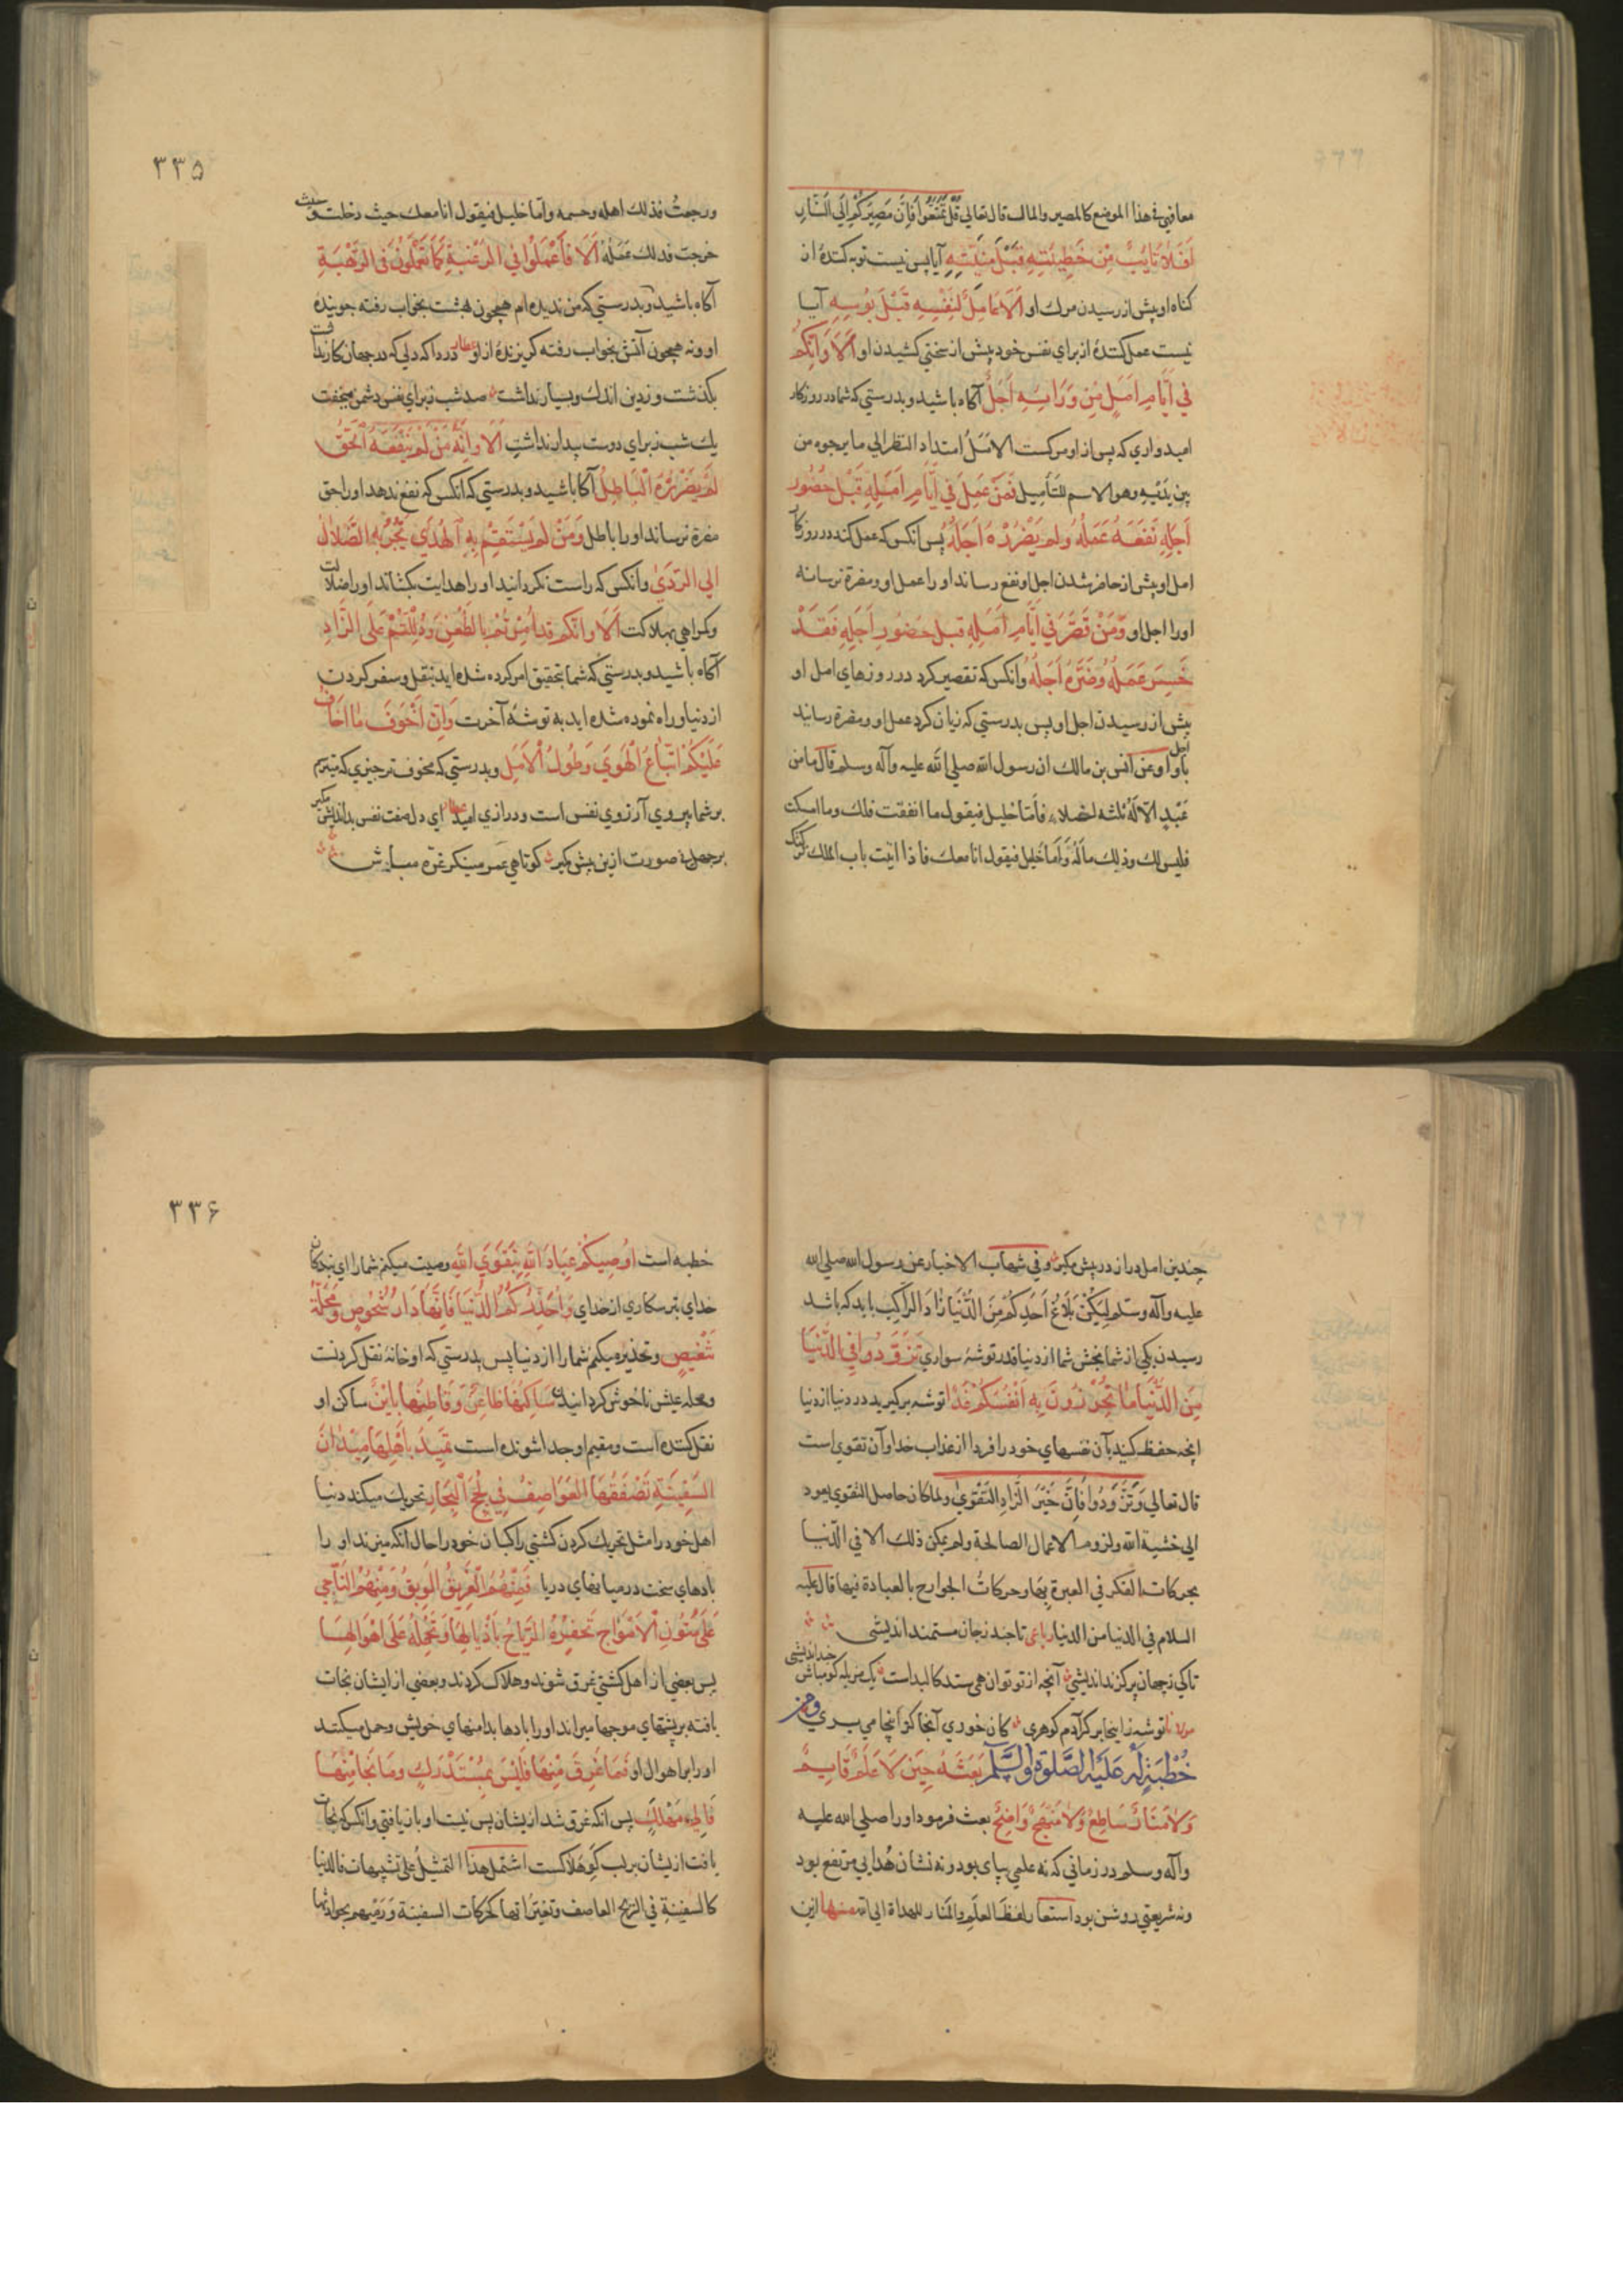 معاقبي في هذا الموضع كالمصير والمال قال تعالى قُلْ تَمَتَّعُوا فَإِنَّ مَصِيرَكُمْ إِلَى النَّارِ
أَفَلَا تَائِبٌ مِنْ خَطِيئَتِهِ قَبْلَ مَنِيَّتِهِ آیا پس نیست توبه کننده از
کناه او پیش از رسیدن مرك او أَلَا عَامِلٌ لِنَفْسِهِ قَبْلَ بُوسِهِ آیا
نیست عمل کننده از برای نفس خود پیش از سختی کشیدن او أَلَا وَإِنَّكُمْ
فِي أَيَّامِ أَمَلٍ مِنْ وَرَائِهِ أَجَلٌ آکاه باشید و بدرستی که شما در روزکار
امیدواری که پس از او مرکست الامَلُ امتداد النظر الي ما يرجوه من
بين يَدَيْهِ وهو الاسم للتأميل فَمَنْ عَمِلَ فِي أَيَّامِ أَمَلِهِ قَبْلَ حُضُورِ
أَجَلِهِ نَفَعَهُ عَمَلُهُ وَلَمْ يَضْرُرْهُ أَجَلُهُ پس آنکس که عمل کند در روزکار
امل او پیش از حاضر شدن اجل او نفع رساند او را عمل او و مضرة نرساند
او را اجل او وَمَنْ قَصَّرَ فِي أَيَّامِ أَمَلِهِ قَبْلَ حُضُورِ أَجَلِهِ فَقَدْ
خَسِرَ عَمَلَهُ وَضَرَّهُ أَجَلُهُ وآنکس که تقصیر کرد در روزهای امل او
پیش از رسیدن اجل او پس بدرستی که زیان کرد عمل او و مضرة رسانید
باو اجل او وعن انس بن مالك ان رسول الله صلى الله عليه وآله وسلم قال ما من
عَبْدٍ الّا لَهُ ثلثه اخلاء فأمّا خليل فيقول ما انفقت فلك وما امسكت
فليس لك وذلك مالُهُ وَأما خليل فيقول انا معك فاذا اتيت باب الملك تركتك
۳۳۵
ورجعتُ فذلك اهله وحشمه وأمّا خليل فيقول انا معك حيث دخلت وحيث
خرجت فذلك عَمَلُهُ أَلَا فَاعْمَلُوا فِي الرَّغْبَةِ كَمَا تَعْمَلُونَ فِي الرَّهْبَةِ
آکاه باشید و بدرستی که من ندیده ام همچون بهشت بخواب رفته جوینده
او و نه همچون آتش بخواب رفته کریزندهٔ از او عطار دردا که دلی که در جهان کار نداشت
بکذشت و زدین اندك و بسیار نداشت صد شب ز برای نفس دشمن میخفت
یك شب ز برای دوست بیدار نداشت أَلَا وَإِنَّهُ مَنْ لَمْ يَنْفَعْهُ الْحَقُّ
يَضْرُرْهُ الْبَاطِلُ آکاه باشید و بدرستی که آنکس که نفع ندهد او را حق
مضرة رساند او را باطل وَمَنْ لَمْ يَسْتَقِمْ بِهِ الْهُدَى يَجُرُّ بِهِ الضَّلَالُ
إِلَى الرَّدَى وانکس که راست نکردانید او را هدایت بکشاند او را ضلالت
وکمراهی بهلاکت أَلَا وَإِنَّكُمْ قَدْ أُمِرْتُمْ بِالظَّعْنِ وَدُلِلْتُمْ عَلَى الزَّادِ
آکاه باشید و بدرستی که شما بتحقیق امر کرده شده اید بنقل و سفر کردن
از دنیا و راه نموده شده اید به توشهٔ آخرت وَإِنَّ أَخْوَفَ مَا أَخَافُ
عَلَيْكُمْ اتِّبَاعُ الْهَوَى وَطُولُ الْأَمَلِ و بدرستی که مخوف تر چیزی که میترسم
بر شما پیروی آرزوی نفس است و درازی امید عطار ای دل صفت نفس بداندیش مکیر
بر جهل صورت ازین پیش مکیر کوتاهی عمر مینکر غرّه مباش
چندین امل دراز در پیش مکیر وفي شهاب الاخبار عن رسول الله صلى الله
عليه وآله وسلم لِيَكُنْ بَلَاغُ أَحَدِكُمْ مِنَ الدُّنْيَا زَادَ الرَّاكِبِ باید که باشد
رسیدن یکی از شما بخش شما از دنیا قدر توشهٔ سواری تَزَوَّدُوا فِي الدُّنْيَا
مِنَ الدُّنْيَا مَا تَحْرُزُونَ بِهِ أَنْفُسَكُمْ غَدًا توشه برکیرید در دنیا از دنیا
انچه حفظ کنید بآن نفسهای خود را فردا از عذاب خدا و آن تقوی است
قال تعالى وَتَزَوَّدُوا فَإِنَّ خَيْرَ الزَّادِ التَّقْوَى ولما كان حاصل التقوى يعود
الى خشية الله ولزوم الاعمال الصالحة ولم يمكن ذلك الا في الدّنيا
بحركات الفكر في العبرة بها وحركاتُ الجوارح بالعبادة فيها قال عليه
السلام في الدنيا من الدنيا رباعی تا چند ز جان مستمند اندیشی
تاکی ز جهان پر کزند اندیشی آنچه از تو توان همی ستد کالبداست یک مزبله کو مباش چند اندیشی
مولانا توشه ز اینجا بر کر آدم کوهری کان خوری آنجا کز اینجا می بری ومن
خُطْبَةٍ لَهُ عَلَيْهِ الصَّلٰوةُ وَالسَّلَامُ بَعَثَهُ حِينَ لَا عَلَمٌ قَائِمٌ
وَلَا مَنَارٌ سَاطِعٌ وَلَا مَنْهَجٌ وَاضِحٌ بعث فرمود او را صلى الله عليه
وآله وسلم در زمانی که نه علمی بپای بود و نه نشان هُدایی مرتفع بود
ونه شریعتی روشن بود استعار لفظ العلم والمنار للهداة الى الله منها ازین
۳۳۶
خطبه است أُوصِيكُمْ عِبَادَ اللَّهِ بِتَقْوَى اللَّهِ وصیت میکنم شما را ای بندکان
خدای بترسکاری از خدای وَأُحَذِّرُكُمُ الدُّنْيَا فَإِنَّهَا دَارُ شُخُوصٍ وَمَحَلَّةُ
تَنْغِيصٍ و تحذیر میکنم شما را از دنیا پس بدرستی که او خانهٔ نقل کردنست
ومحله عیش ناخوش کردانیدن سَاكِنُهَا ظَاعِنٌ وَقَاطِنُهَا بَائِنٌ ساکن او
نقل کننده است و مقیم او جدا شونده است تَمِيدُ بِأَهْلِهَا مَيَدَانَ
السَّفِينَةِ تَصْفِقُهَا الْعَوَاصِفُ فِي لُجَجِ الْبِحَارِ تحریك میکند دنیا
اهل خود را مثل تحریك کردن کشتی راکبان خود را حال انکه میزند او را
بادهای سخت در میانهای دریا فَمِنْهُمُ الْغَرِيقُ الْوَبِقُ وَمِنْهُمُ النَّاجِي
عَلَى مُتُونِ الْأَمْوَاجِ تَحْفِزُهُ الرِّيَاحُ بِأَذْيَالِهَا وَتَحْمِلُهُ عَلَى أَهْوَالِهَا
پس بعضی از اهل کشتی غرق شوند و هلاک کردند و بعضی از ایشان نجات
یافته بر پشتهای موجها میراند او را بادها بدامنهای خویش و حمل میکند
او را بر اهوال او فَمَا غَرِقَ مِنْهَا فَلَيْسَ بِمُسْتَدْرَكٍ وَمَا نَجَا مِنْهَا
فَإِلَى مَهْلَكٍ پس انکه غرق شد از یشان پس نیست او باز یافتی وانکس که نجات
یافت از یشان بر لب کو هلاکست اشتمل هذا التمثيلُ على تشبيهات فالدنيا
كالسفينة في الريح العاصف وتغيّراتها كحركات السفينة ورميهم بحوادثها